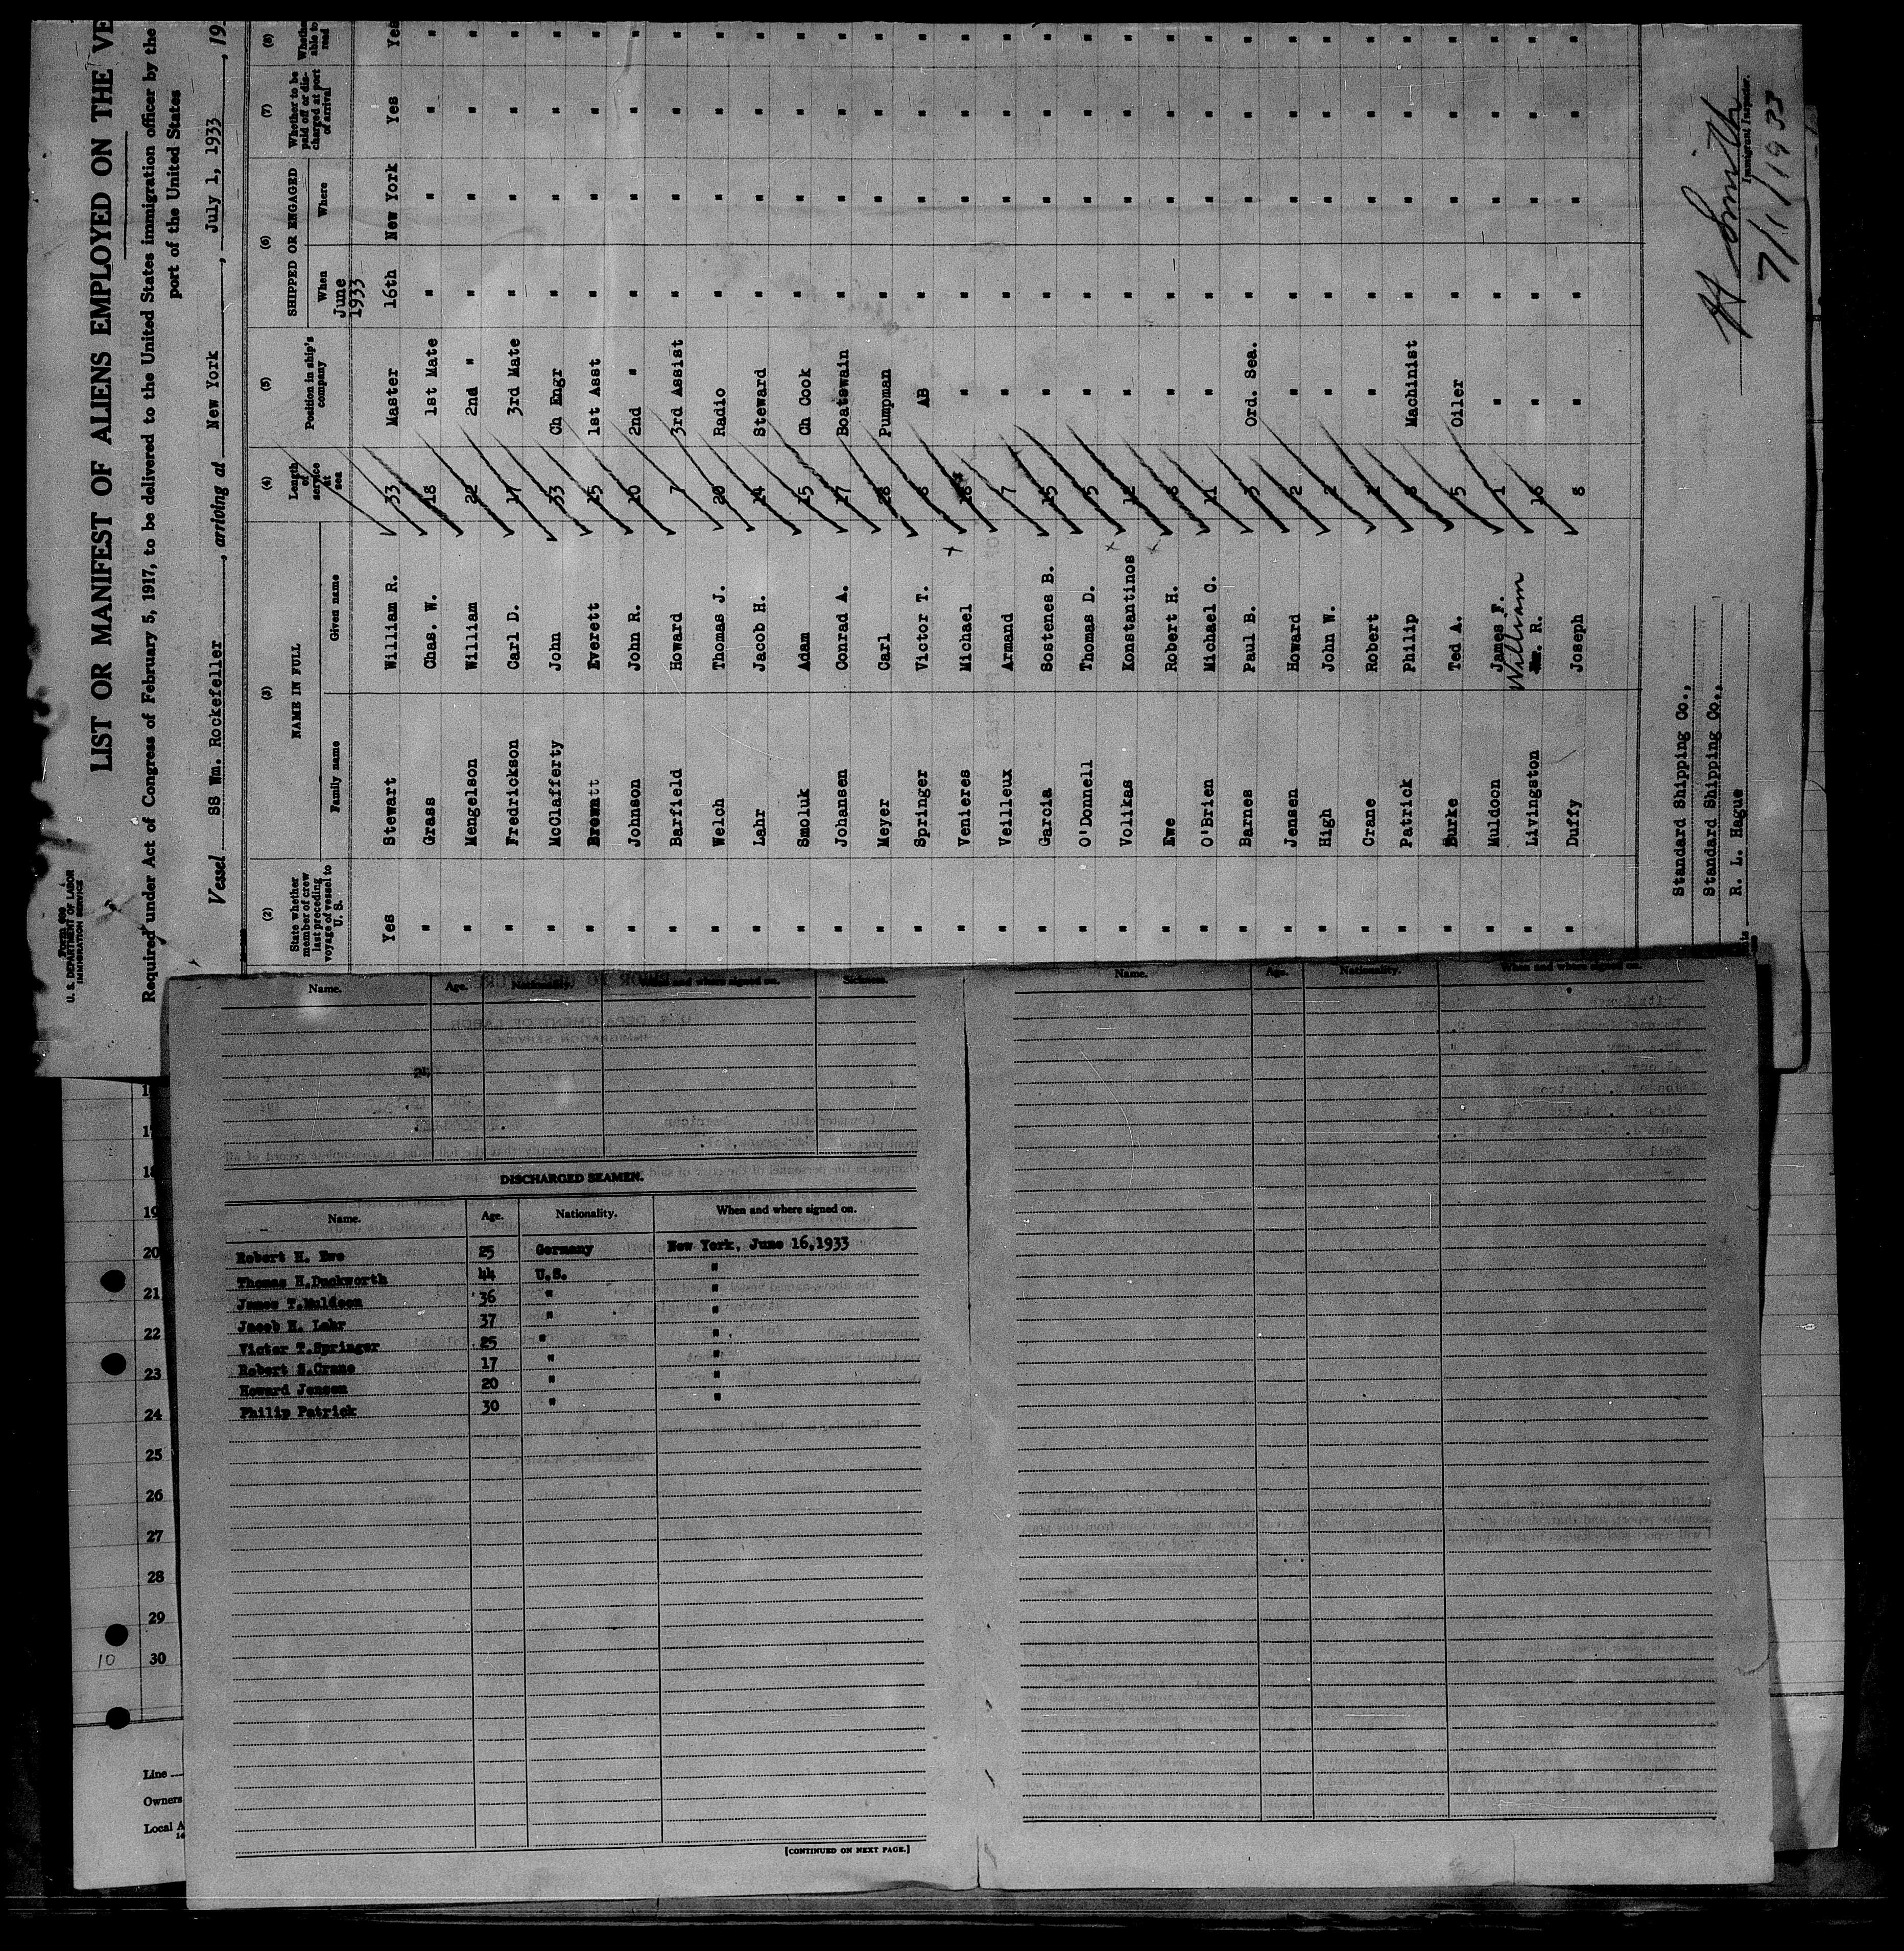 Form 689
U. S. DEPARTMENT OF LABOR
IMMIGRATION SERVICE
LIST OR MANIFEST OF ALIENS EMPLOYED ON THE VE
Required under Act of Congress of February 5, 1917, to be delivered to the United States immigration officer by the
port of the United States
Vessel SS Wm. Rockefeller, arriving at New York, July 1, 1933, 19
(2) (3) (4) (5) (6) (7) (8)
State whether member of crew last preceding voyage of vessel to U. S. NAME IN FULL Family name Given name Length of service at sea Position in ship's company SHIPPED OR ENGAGED When Where Whether to be paid off or discharged at port of arrival Whether able to read
June 1933
Yes Stewart William R. 33 Master 16th New York Yes Yes
" Grass Chas. W. 18 1st Mate " " " "
" Mengelson William 22 2nd " " " " "
" Fredrickson Carl D. 17 3rd Mate " " " "
" McClafferty John 33 Ch Engr " " " "
" Everett 15 1st Asst " " " "
" Johnson John R. 10 2nd " " " " "
" Barfield Howard 7 3rd Assist " " " "
" Welch Thomas J. 20 Radio " " " "
" Lahr Jacob H. 14 Steward " " " "
" Smoluk Adam 15 Ch Cook " " " "
" Johansen Conrad A. 17 Boatswain " " " "
" Meyer Carl 28 Pumpman " " " "
" Springer Victor T. 8 AB " " " "
" Venieres Michael " " " " "
" Veilleux Armand 7 " " " " "
" Garcia Sostenes B. 15 " " " " "
" O'Donnell Thomas D. 5 " " " " "
" Volikas Konstantinos 12 " " " " "
" Ewe Robert H. 8 " " " " "
" O'Brien Michael C. 11 " " " " "
" Barnes Paul B. 3 Ord. Sea. " " " "
" Jensen Howard 2 " " " " "
" High John W. 2 " " " " "
" Crane Robert 1 " " " " "
" Patrick Philip 8 Machinist " " " "
" Burke Ted A. 5 Oiler " " " "
" Muldoon James F. 1 " " " " "
" Livingston William Wm. R. 16 " " " " "
" Duffy Joseph 8 " " " " "
Standard Shipping Co.,
Standard Shipping Co.,
R. L. Hague
H Smith
Immigrant Inspector.
7/1/1933
Name. Age. Nationality. When and where signed on. Sickness.
DISCHARGED SEAMEN.
Name. Age. Nationality. When and where signed on.
Robert H. Ewe 25 Germany New York, June 16,1933
Thomas H.Duckworth 44 U.S. "
James T.Muldoon 36 " "
Jacob H. Lahr 37 " "
Victor T.Springer 25 " "
Robert S.Crane 17 " "
Howard Jensen 20 " "
Philip Patrick 30 " "
[CONTINUED ON NEXT PAGE.]
Name. Age. Nationality. When and where signed on.
19
20
21
22
23
24
25
26
27
28
29
10 30
Line
Owners
Local A